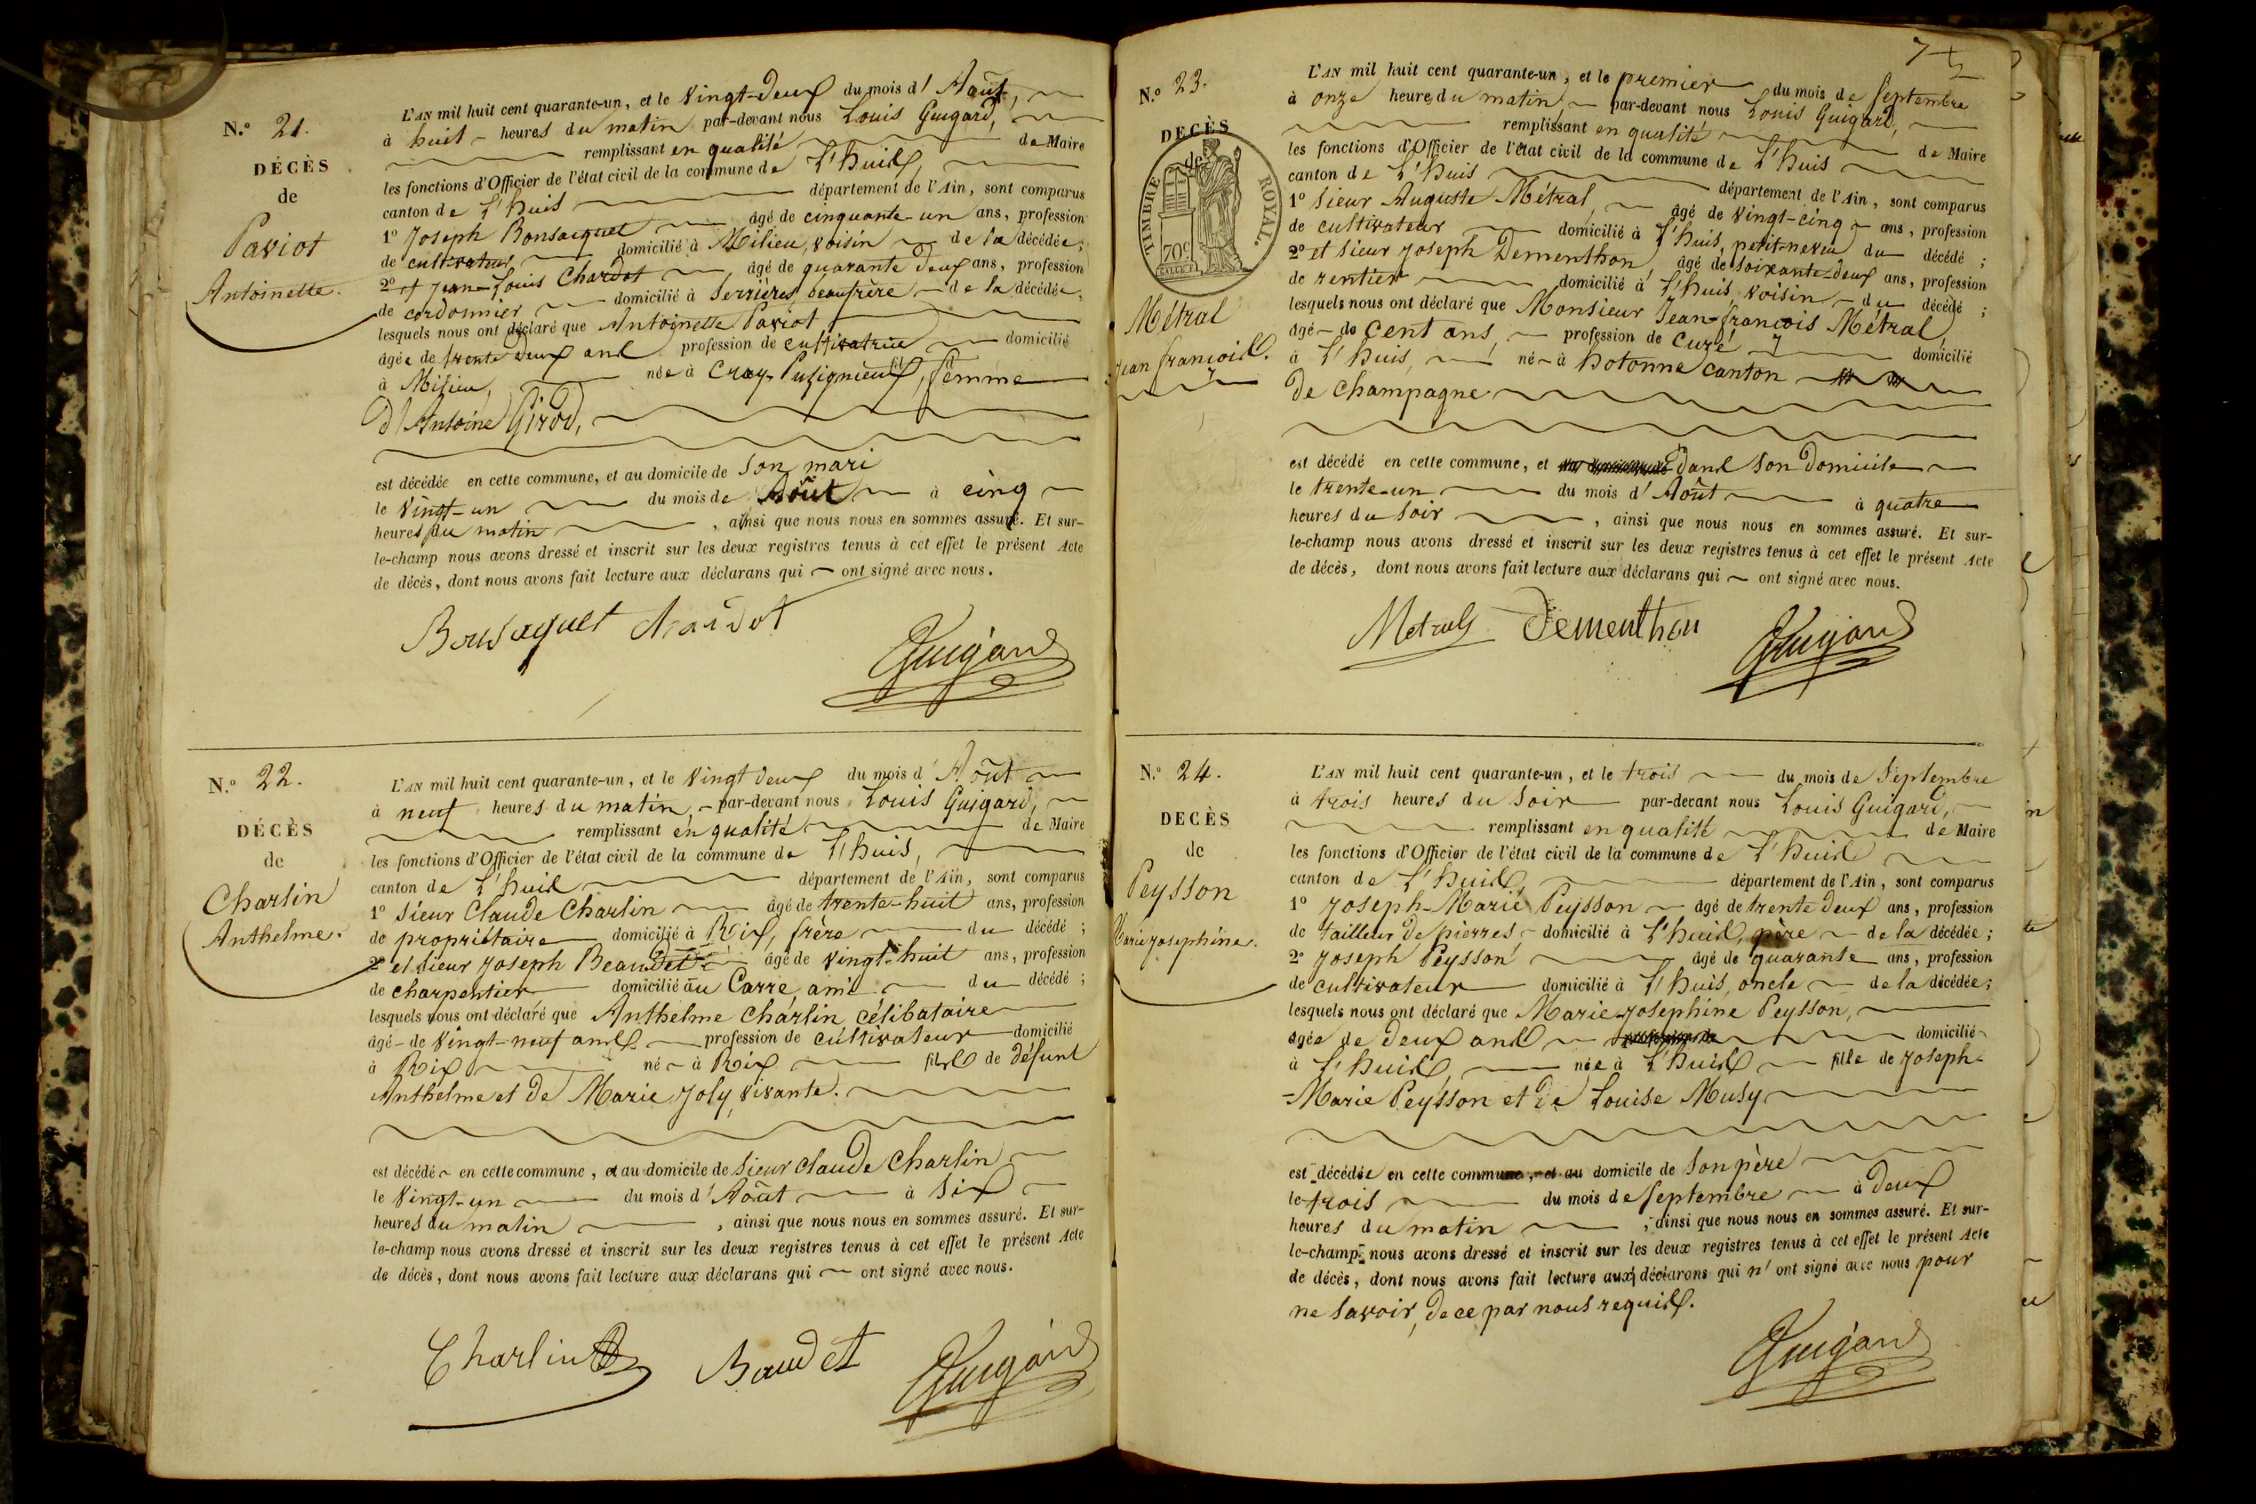 N.º 21.
DÉCÈS
de
Paviot
Antoinette.
L'AN mil huit cent quarante-un, et le vingt-deux du mois d'Août,
à huit heures du matin par-devant nous Louis Guigard,
remplissant en qualité de Maire
les fonctions d'Officier de l'état civil de la commune de L'huis,
canton de L'huis département de l'Ain, sont comparus
1º Joseph Bonsacquet âgé de cinquante-un ans, profession
de cultivateur domicilié à Milieu, voisin de la décédée;
2º et Jean-Louis Chardot âgé de quarante deux ans, profession
de cordonnier domicilié à Serrières, beaufrère de la décédée,
lesquels nous ont déclaré que Antoinette Paviot
âgée de trente deux ans profession de cultivatrice domicilié
à Milieu, née à Crey-Pusignieux, femme
d'Antoine Girod,
est décédée en cette commune, et au domicile de son mari
le vingt-un du mois de Août à cinq
heures du matin, ainsi que nous nous en sommes assuré. Et sur-
le-champ nous avons dressé et inscrit sur les deux registres tenus à cet effet le présent Acte
de décès, dont nous avons fait lecture aux déclarans qui ont signé avec nous.
Bonsacquet Chardot
Guigard
N.º 22.
DÉCÈS
de
Charlin
Anthelme.
L'AN mil huit cent quarante-un, et le vingt deux du mois d'Août
à neuf heures du matin, par-devant nous Louis Guigard,
remplissant en qualité de Maire
les fonctions d'Officier de l'état civil de la commune de L'huis,
canton de L'huis département de l'Ain, sont comparus
1º Sieur Claude Charlin âgé de trente-huit ans, profession
de propriétaire domicilié à Rix, frère du décédé;
2º et Sieur Joseph Beaudet âgé de vingt-huit ans, profession
de charpentier domicilié au Carre, ami du décédé;
lesquels nous ont déclaré que Anthelme Charlin célibataire
âgé de vingt-neuf ans profession de cultivateur domicilié
à Rix né à Rix fils de défunt
Anthelme et de Marie Joly, vivante.
est décédé en cette commune, et au domicile de Sieur Claude Charlin
le vingt-un du mois d'Août à six
heures du matin, ainsi que nous nous en sommes assuré. Et sur-
le-champ nous avons dressé et inscrit sur les deux registres tenus à cet effet le présent Acte
de décès, dont nous avons fait lecture aux déclarans qui ont signé avec nous.
Charlin Baudet Guigard
N.º 23.
DECÈS
de
TIMBRE ROYAL.
70c
Métral
Jean françois.
L'AN mil huit cent quarante-un, et le premier du mois de Septembre
à onze heures du matin, par-devant nous Louis Guigard,
remplissant en qualité de Maire
les fonctions d'Officier de l'état civil de la commune de L'huis
canton de L'huis département de l'Ain, sont comparus
1º Sieur Auguste Métral, âgé de vingt-cinq ans, profession
de cultivateur domicilié à L'huis, petit-neveu du décédé;
2º et Sieur Joseph Dementhon âgé de soixante-deux ans, profession
de rentier domicilié à L'huis, voisin du décédé;
lesquels nous ont déclaré que Monsieur Jean-françois Métral,
âgé de cent ans, profession de Curé domicilié
à L'huis, né à hotonne canton
de Champagne
est décédé en cette commune, et dans son Domicile
le trente-un du mois d'Août à quatre
heures du soir, ainsi que nous nous en sommes assuré. Et sur-
le-champ nous avons dressé et inscrit sur les deux registres tenus à cet effet le présent Acte
de décès, dont nous avons fait lecture aux déclarans qui ont signé avec nous.
Metral Dementhon Guigard
N.º 24.
DECÈS
de
Peysson
Marie Josephine.
L'AN mil huit cent quarante-un, et le trois du mois de Septembre
à trois heures du soir par-devant nous Louis Guigard,
remplissant en qualité de Maire
les fonctions d'Officier de l'état civil de la commune de L'huis
canton de L'huis, département de l'Ain, sont comparus
1º Joseph-Marie Peysson âgé de trente deux ans, profession
de tailleur de pierres domicilié à L'huis, père de la décédée;
2º Joseph Peysson âgé de quarante ans, profession
de cultivateur domicilié à L'huis, oncle de la décédée;
lesquels nous ont déclaré que Marie-Josephine Peysson,
agée de deux ans profession de domicilié
à L'huis, née à L'huis fille de Joseph-
-Marie Peysson et de Louise Musy
est décédée en cette commune, et au domicile de son père
le trois du mois de Septembre à deux
heures du matin; ainsi que nous nous en sommes assuré. Et sur-
le-champ nous avons dressé et inscrit sur les deux registres tenus à cet effet le présent Acte
de décès, dont nous avons fait lecture aux déclarans qui n'ont signé avec nous pour
ne savoir, de ce par nous requis.
Guigard